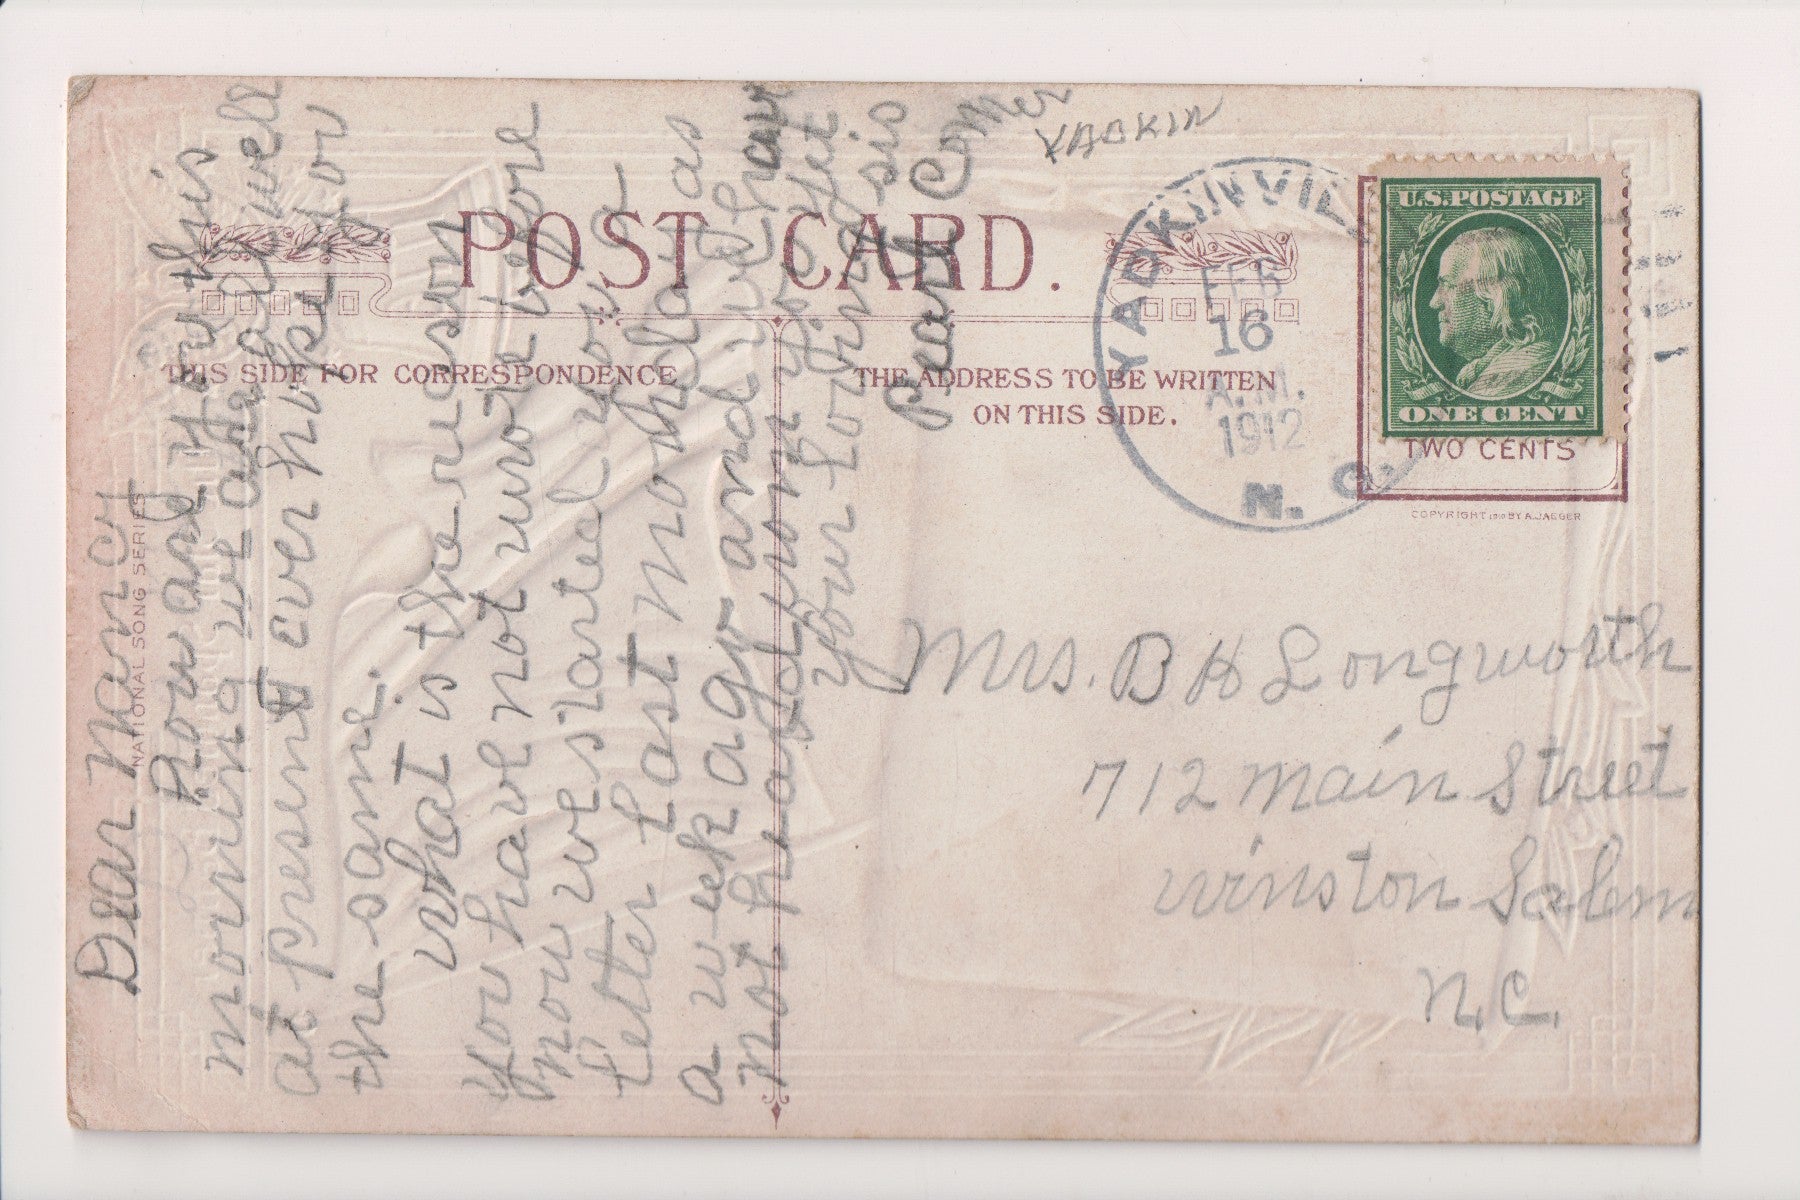 YADKIN
POST CARD.
THIS SIDE FOR CORRESPONDENCE
THE ADDRESS TO BE WRITTEN
ON THIS SIDE.
YADKINVILLE
FEB
16
A.M.
1912
N. C.
U.S. POSTAGE
ONE CENT
TWO CENTS
COPYRIGHT 1910 BY A. JAEGER
NATIONAL SONG SERIES
Dear Nancy
How are you this
morning we are all well
at present I ever hope you
the same.
what is the reason
you have not wrote before
now we started you a
letter last Monday was
a week ago and we have
not heard from you yet
your loving sis
Pearl Comer
Mrs. B H Longworth
712 Main Street
Winston Salem
N.C.